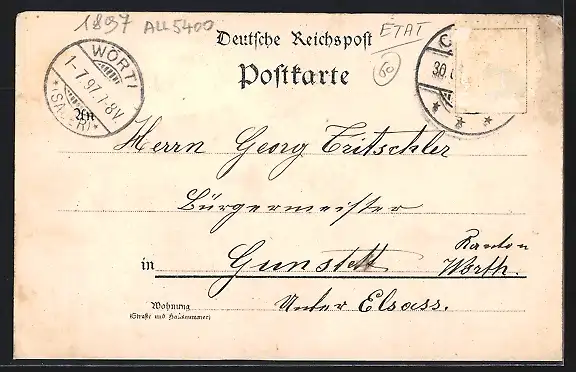 1897 ALL5400
ETAT
60
Deutsche Reichspost
Postkarte
WÖRTH
1-7.97.7-8V.
(SAUER)
30
An
Herrn Georg Tritschler
Bürgermeister
in Gunstett Kanton
Wörth.
Wohnung
(Straße und Hausnummer)
Unter Elsass.